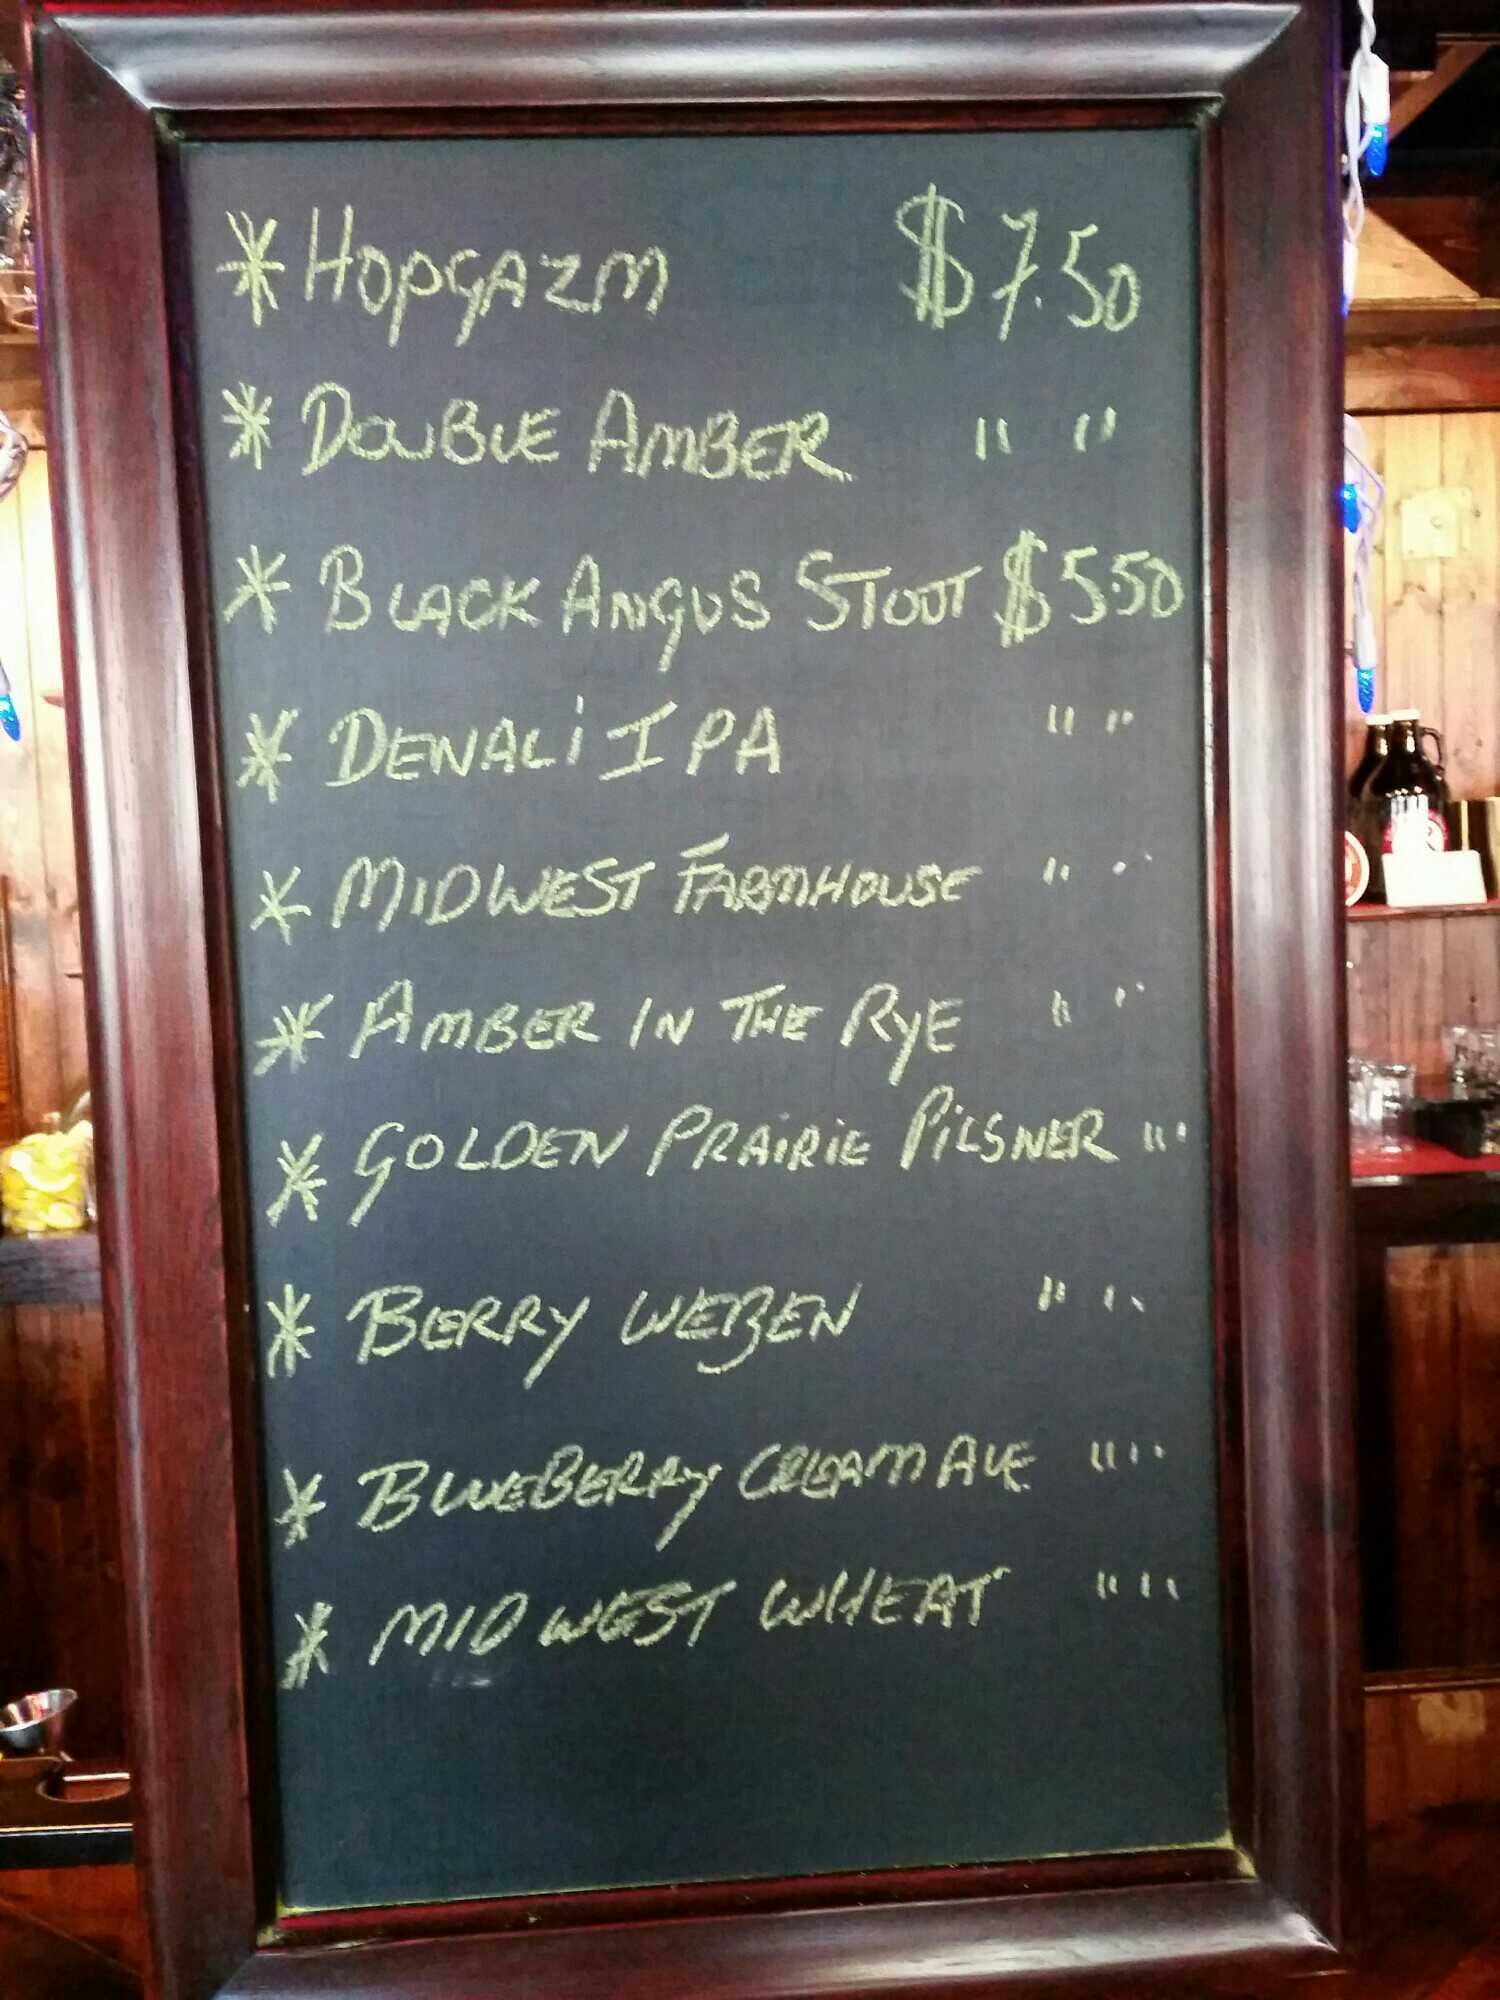 * HOPGAZM $7.50
* DOUBLE AMBER " "
* BLACK ANGUS STOUT $5.50
* DENALI IPA " "
* MIDWEST FARMHOUSE " "
* AMBER IN THE RYE " "
* GOLDEN PRAIRIE PILSNER " "
* BERRY WEIZEN " "
* BLUEBERRY CREAM ALE " "
* MIDWEST WHEAT " "